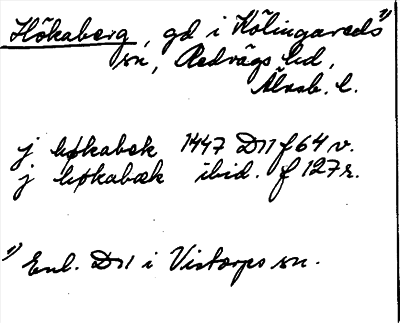 Hökaberg, gd i Kölingareds 1)
sn, Redvägs hd,
Älvsb. l.
j høkabæk 1447 D11 f 64 v.
j høkabæk ibid. f 127 r.
1) Enl. D11 i Vistorps sn.